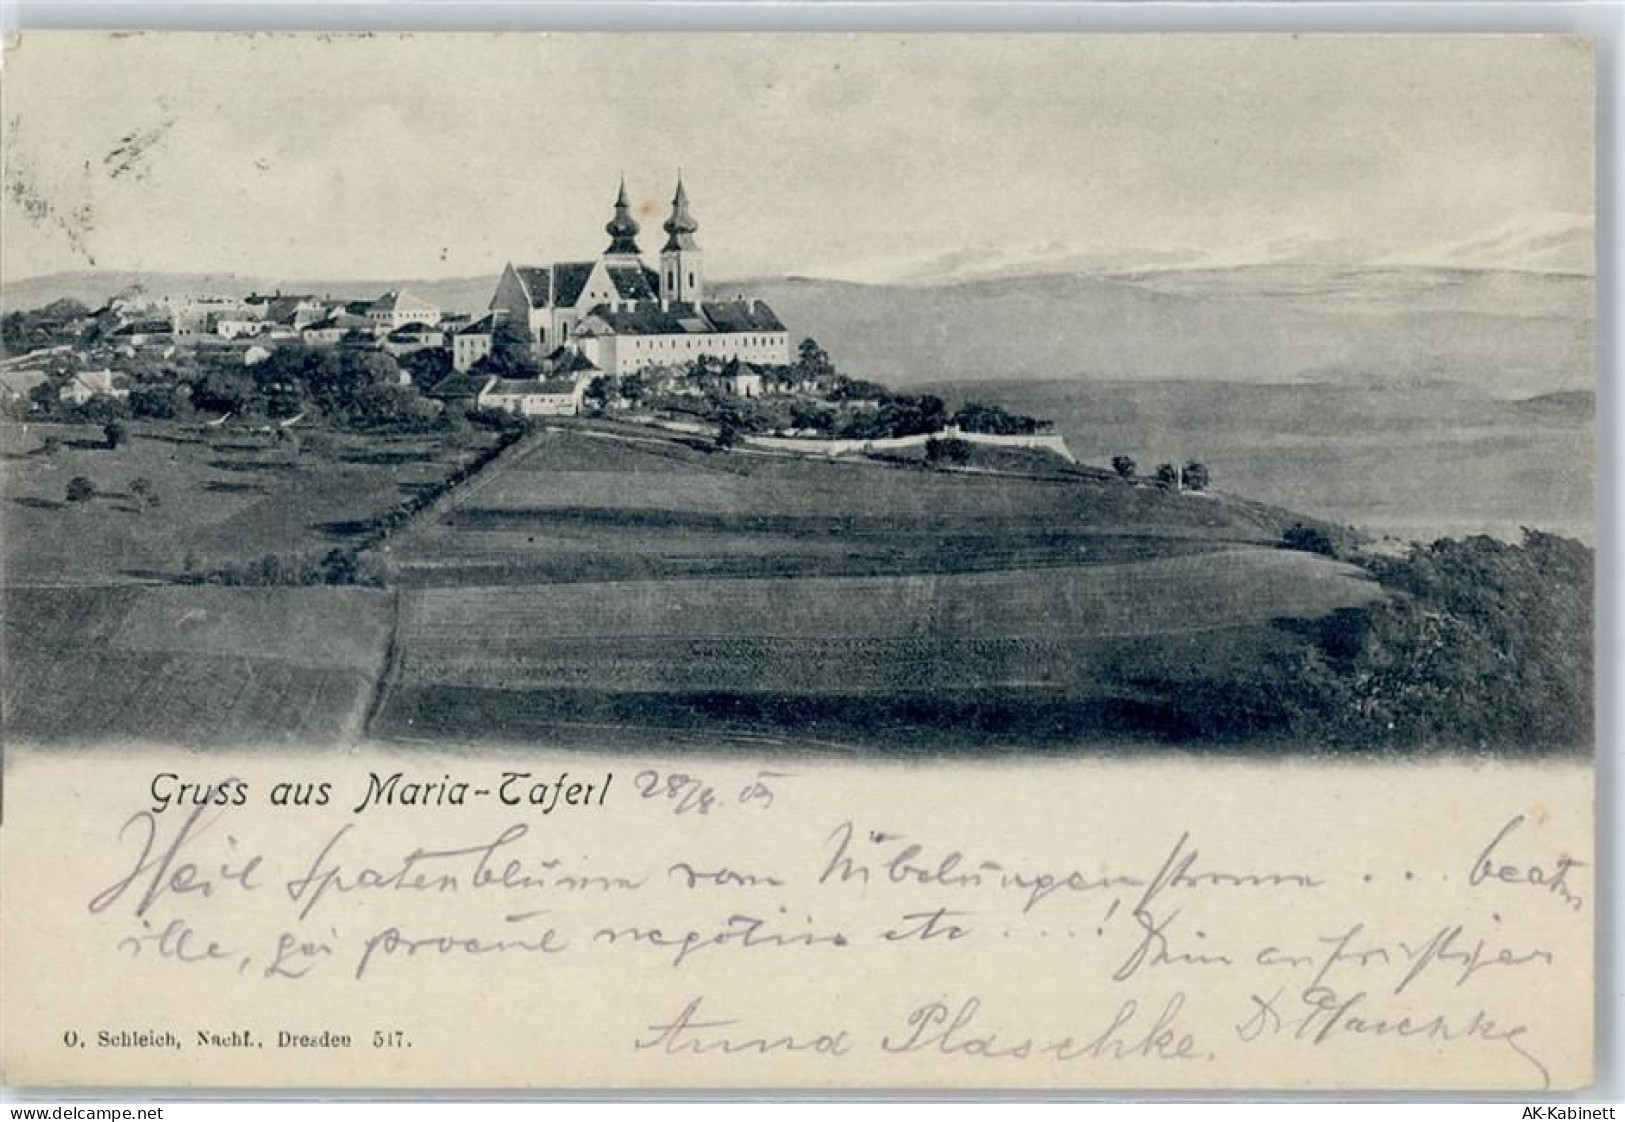 Gruss aus Maria-Taferl 28/8.
Heil Spatenbluim vom Nibelungenstrome ... beatus
ille, qui procul negotiis etc ....! Dein aufrichtiger
Dr Plaschke
Anna Plaschke.
O. Schleich, Nachf., Dresden 547.
www.delcampe.net
AK-Kabinett